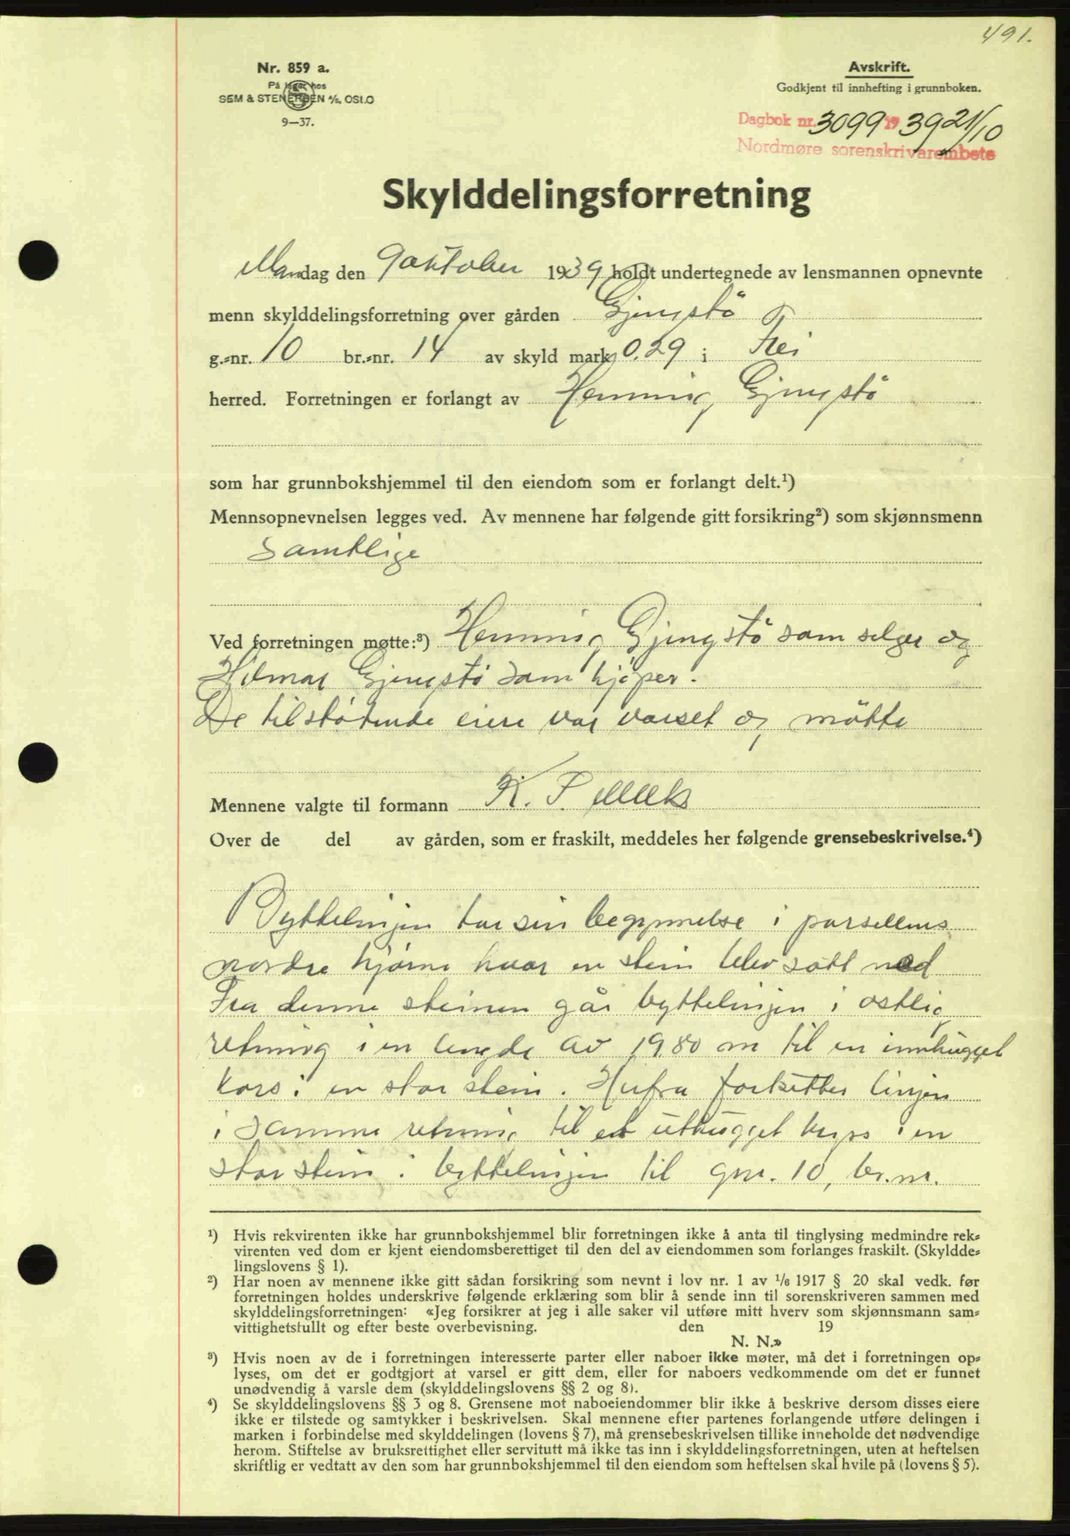 491.
Nr. 859 a.
På lager hos
SEM & STENERSEN A/S, OSLO
9—37.
Avskrift.
Godkjent til innhefting i grunnboken.
Dagbok nr. 3099 1939 21/10
Nordmøre sorenskrivarembete
Skylddelingsforretning
Mandag den 9 oktober 1939 holdt undertegnede av lensmannen opnevnte
menn skylddelingsforretning over gården Gjengstö
g.-nr. 10 br.-nr. 14 av skyld mark 0.29 i Frei
herred. Forretningen er forlangt av Henning Gjengstö
som har grunnbokshjemmel til den eiendom som er forlangt delt.¹)
Mennsopnevnelsen legges ved. Av mennene har følgende gitt forsikring²) som skjønnsmenn
Samtlige
Ved forretningen møtte:³) Henning Gjengstö som selger og
Hilmar Gjengstö som kjöper.
De tilstøtende eiere var varslet og mötte
Mennene valgte til formann K. P.
Over de del av gården, som er fraskilt, meddeles her følgende grensebeskrivelse.⁴)
Byttelinjen tar sin begynnelse i parsellens
nordre hjörne hvor en stein blev satt ned
Fra denne steinen går byttelinjen i ostlig
retning i en lengde av 19.80 m til en innhugget
kors i en stor stein. Herfra fortsetter linjen
i samme retning til et uthugget kryss i en
stor stein i byttelinjen til gnr. 10, br.nr.
¹) Hvis rekvirenten ikke har grunnbokshjemmel blir forretningen ikke å anta til tinglysing medmindre rek-
virenten ved dom er kjent eiendomsberettiget til den del av eiendommen som forlanges fraskilt. (Skyldde-
lingslovens § 1).
²) Har noen av mennene ikke gitt sådan forsikring som nevnt i lov nr. 1 av 1/6 1917 § 20 skal vedk. før
forretningen holdes underskrive følgende erklæring som blir å sende inn til sorenskriveren sammen med
skylddelingsforretningen: «Jeg forsikrer at jeg i alle saker vil utføre mitt hverv som skjønnsmann sam-
vittighetsfullt og efter beste overbevisning. den 19
N. N.»
³) Hvis noen av de i forretningen interesserte parter eller naboer ikke møter, må det i forretningen op-
lyses, om det er godtgjort at varsel er gitt dem, eller for naboers vedkommende om det er funnet
unødvendig å varsle dem (skylddelingslovens §§ 2 og 8).
⁴) Se skylddelingslovens §§ 3 og 8. Grensene mot naboeiendommer blir ikke å beskrive dersom disses eiere
ikke er tilstede og samtykker i beskrivelsen. Skal mennene efter partenes forlangende utføre delingen i
marken i forbindelse med skylddelingen (lovens § 7), må grensebeskrivelsen tillike inneholde det nødvendige
herom. Stiftelse av bruksrettighet eller servitutt må ikke tas inn i skylddelingsforretningen, uten at heftelsen
skriftlig er vedtatt av den som har grunnbokshjemmel til den eiendom som heftelsen skal hvile på (lovens § 5).